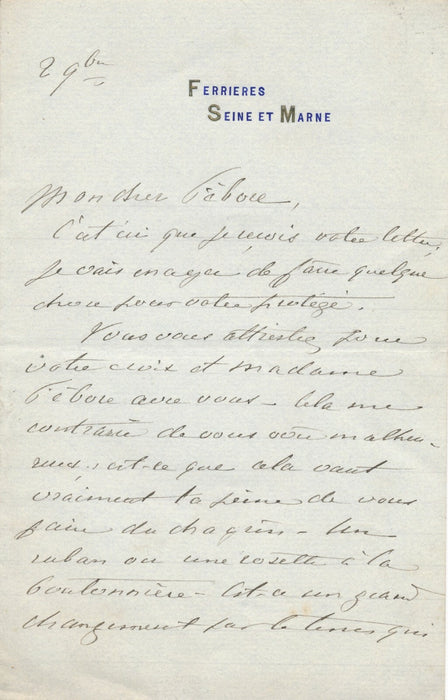 2 9bre
FERRIERES
SEINE ET MARNE
Mon cher Fébvre,
C'est ici que je reçois votre lettre,
je vais essayer de faire quelque
chose pour votre protégé.
Vous vous attristez pour
votre croix et madame
Fébvre avec vous – Cela me
contrarie de vous voir malheu-
reux, est-ce que cela vaut
vraiment la peine de vous
faire du chagrin – Un
ruban ou une rosette à la
boutonnière – Est-ce un grand
changement par le temps qui